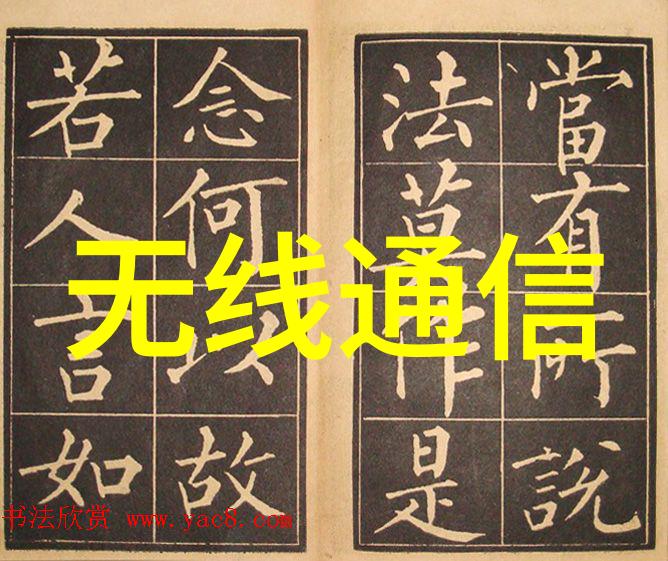 當有所說
法莫作是
念何以故
若人言如
无线通信
书法欣赏 www.yac8.com